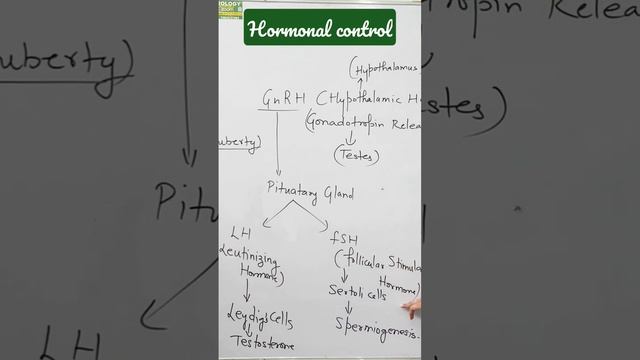 BIOLOGY
Hormonal control
(Hypothalamus
GnRH (Hypothalamic Ho
(Gonadotropin Relea
uberty)
(Testes)
Pituatary Gland
LH
Leutinizing
Hormone)
FSH
(follicular Stimula
Hormone)
Leydigs Cells
Testosterone
Sertoli cells
Spermiogenesis
uberty)
Pitu
LH
Relea
stes)